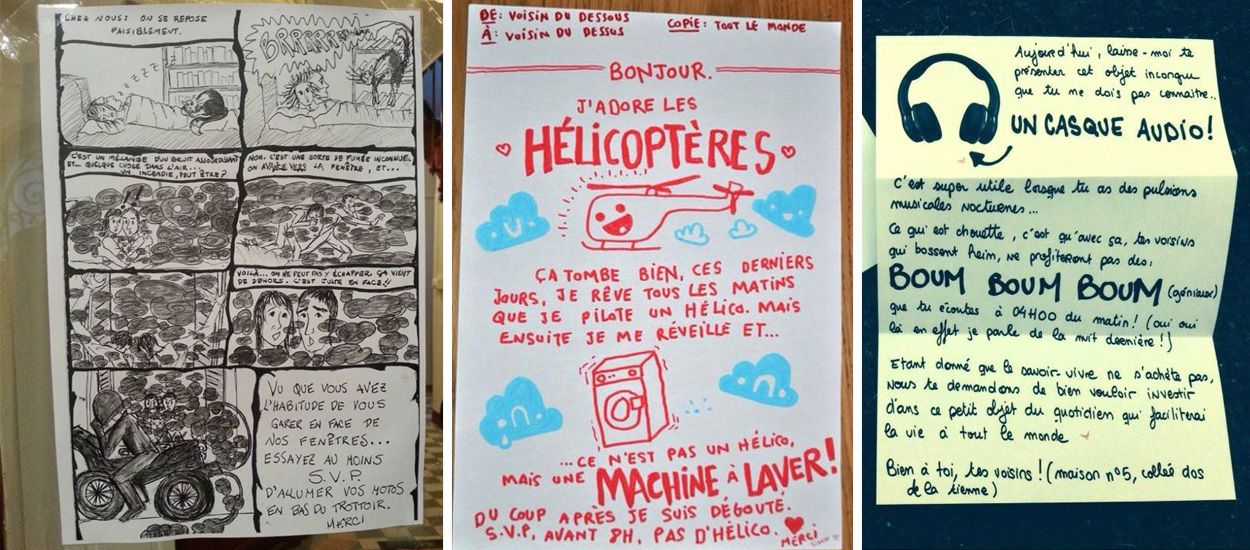 CHEZ NOUS: ON SE REPOSE
PAISIBLEMENT.
ZZZZZZ
BRRRRRRRR
C'EST UN MÉLANGE D'UN BRUIT ASSOURDISSANT
ET... QUELQUE CHOSE DANS L'AIR...
UN INCENDIE, PEUT ÊTRE?
NON. C'EST UNE SORTE DE FUMÉE INCONNUE.
ON AVANCE VERS LA FENÊTRE, ET...
VOILÀ... ON NE PEUT PAS Y ÉCHAPPER. ÇA VIENT
DE DEHORS. C'EST JUSTE EN FACE!!
VU QUE VOUS AVEZ
L'HABITUDE DE VOUS
GARER EN FACE DE
NOS FENÊTRES...
ESSAYEZ AU MOINS
S.V.P.
D'ALLUMER VOS MOTOS
EN BAS DU TROTTOIR.
MERCI
DE: VOISIN DU DESSOUS
À: VOISIN DU DESSUS
COPIE: TOUT LE MONDE
BONJOUR.
J'ADORE LES
HÉLICOPTÈRES
ÇA TOMBE BIEN, CES DERNIERS
JOURS, JE RÊVE TOUS LES MATINS
QUE JE PILOTE UN HÉLICO. MAIS
ENSUITE JE ME RÉVEILLE ET...
...CE N'EST PAS UN HÉLICO,
MAIS UNE MACHINE À LAVER!
DU COUP APRÈS JE SUIS DÉGOUTÉ.
S.V.P, AVANT 8H, PAS D'HÉLICO.
MERCI
Aujourd'hui, laisse-moi te
présenter cet objet inconnu
que tu ne dois pas connaitre...
UN CASQUE AUDIO!
C'est super utile lorsque tu as des pulsions
musicales nocturnes...
Ce qui est chouette, c'est qu'avec ça, tes voisins
qui bossent hein, ne profiteront pas des:
BOUM BOUM BOUM (géniaux)
que tu écoutes à 04H00 du matin! (oui oui
là en effet je parle de la nuit dernière!)
Etant donné que le savoir-vivre ne s'achète pas,
nous te demandons de bien vouloir investir
dans ce petit objet du quotidien qui faciliterai
la vie à tout le monde
Bien à toi, tes voisins! (maison n°5, collée dos
de la tienne)